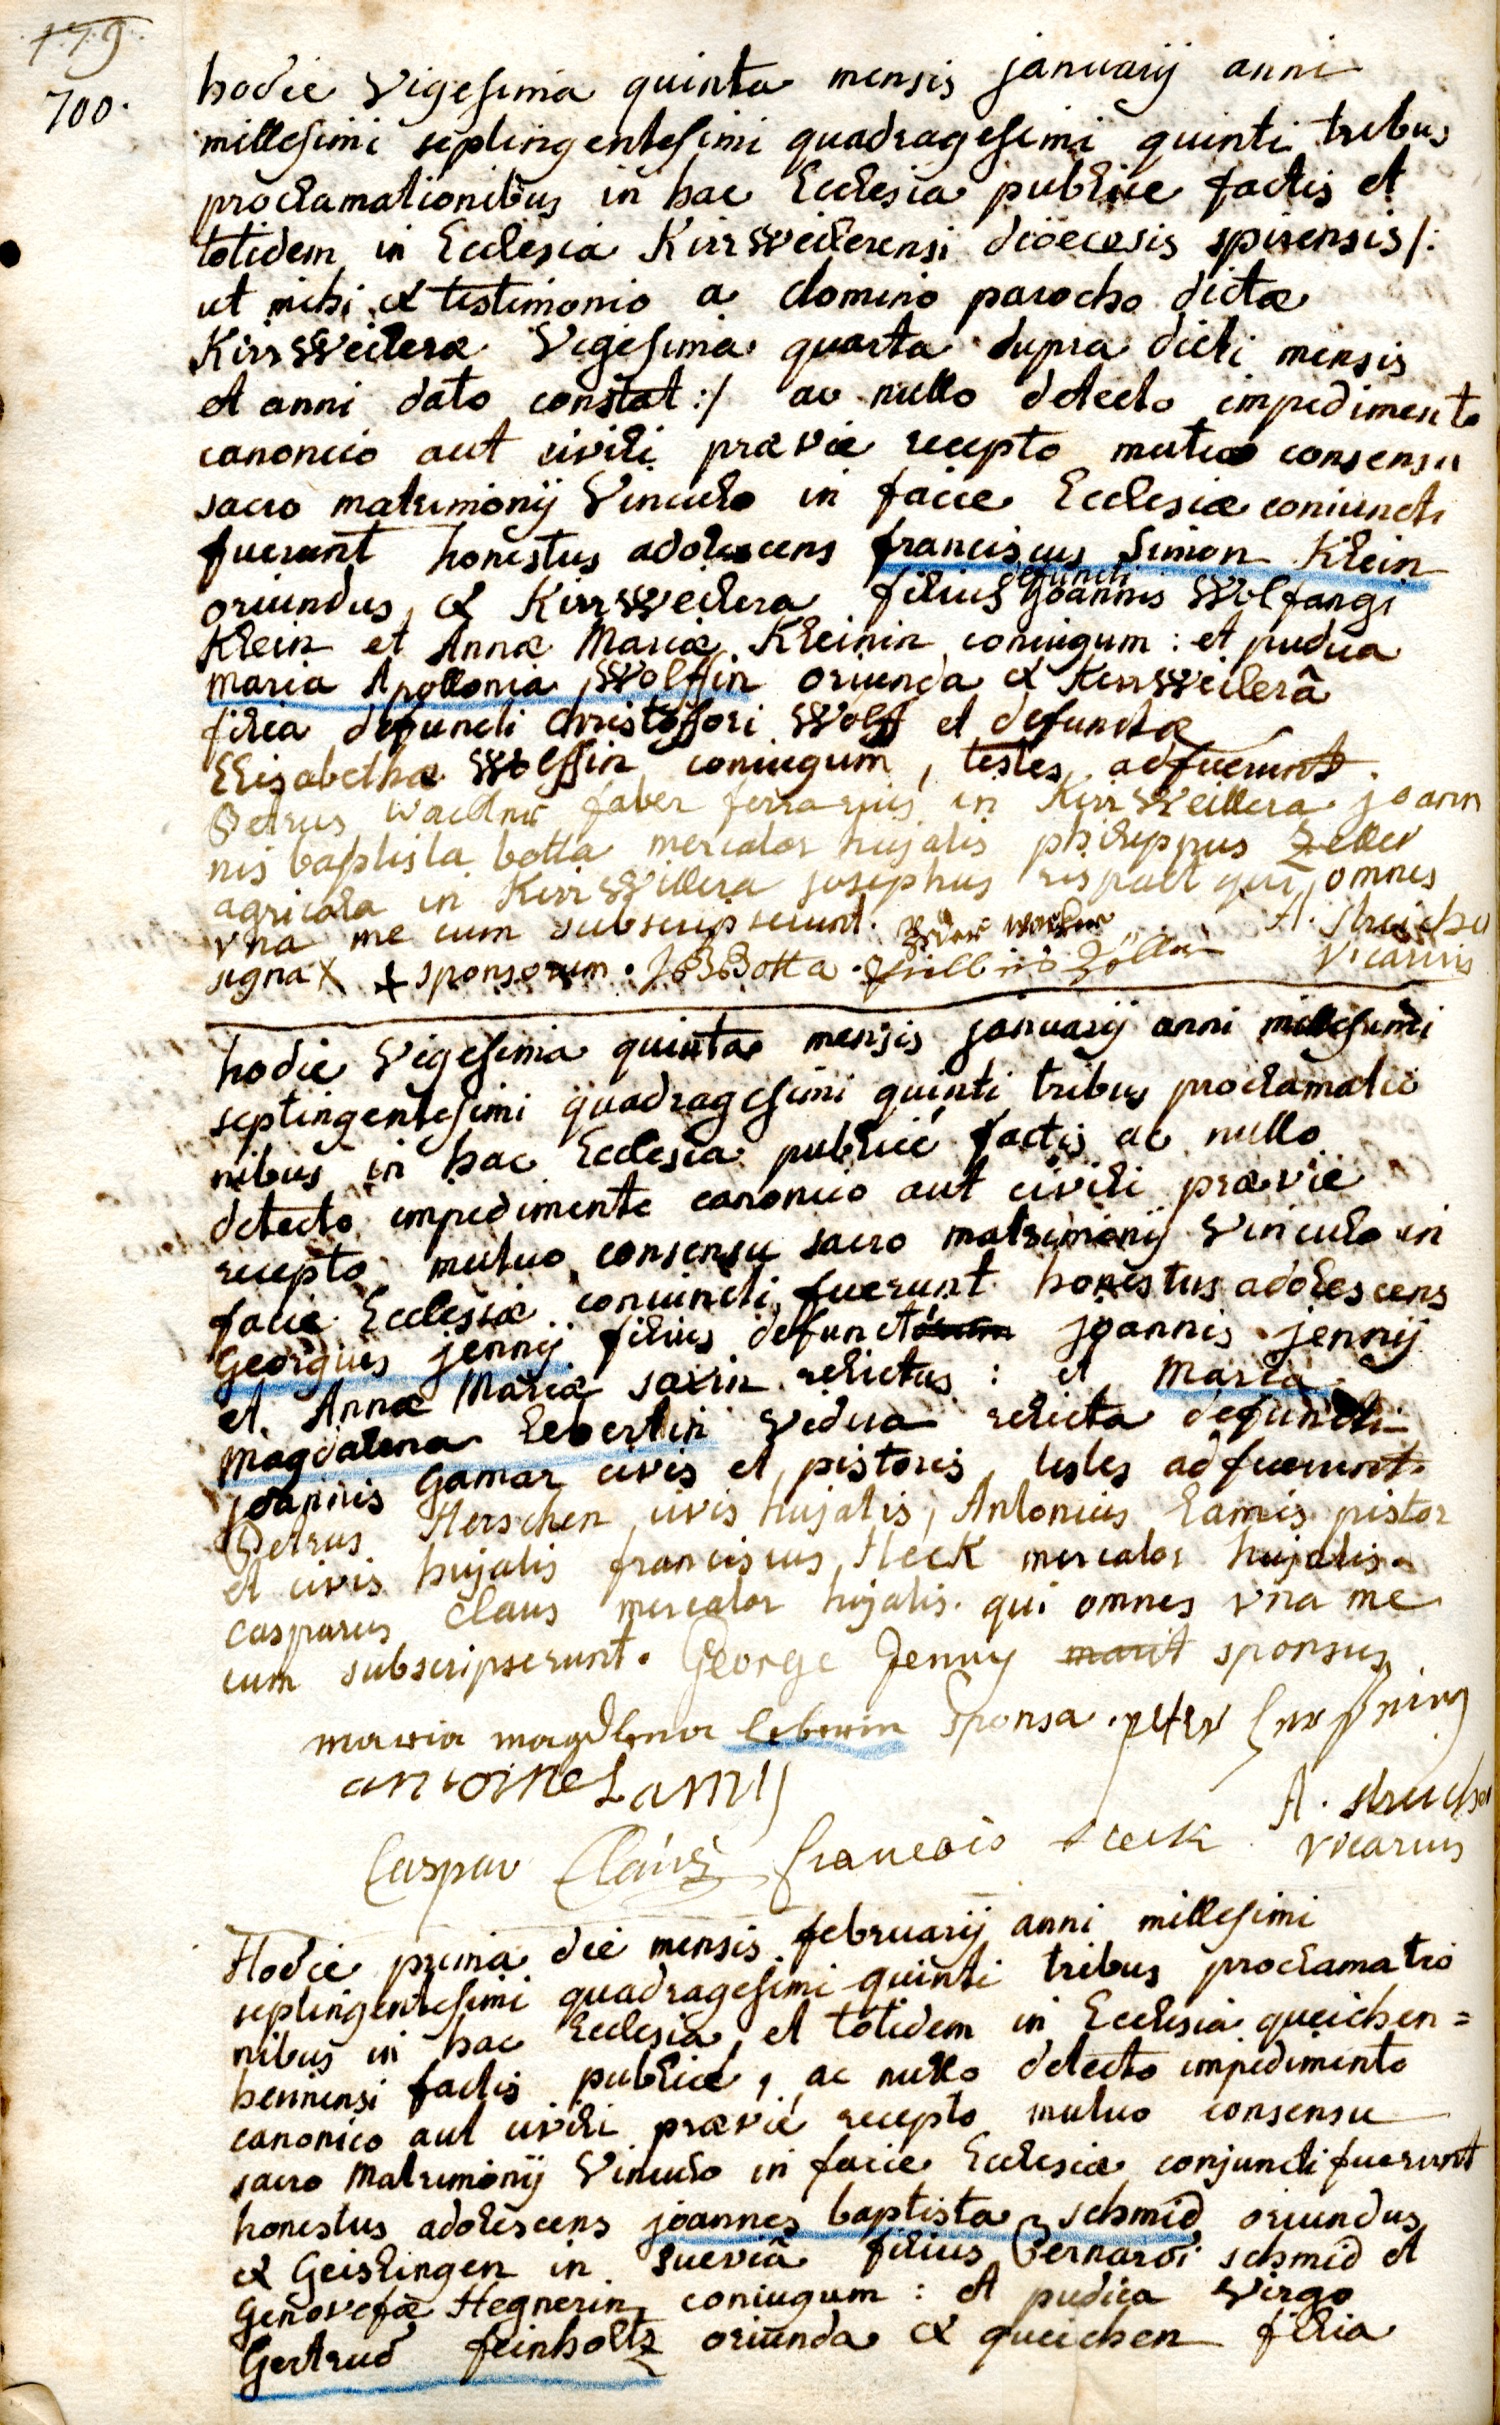 179
700.
hodie Vigesima quinta mensis januarij anni
millesimi septingentesimi quadragesimi quinti tribus
proclamationibus in hac Ecclesia publice factis et
totidem in Ecclesia Kirrweilerensi dioecesis spirensis /:
ut mihi ex testimonio a domino parocho dictae
Kirrweilerae Vigesima quarta supra dicti mensis
et anni dato constat :/ ac nullo detecto impedimento
canonico aut civili praevie recepto mutuo consensu
sacro matrimonij Vinculo in facie Ecclesiae coniuncti
fuerunt honestus adolescens franciscus Simon Klein
oriundus ex Kirrweilera filius defuncti Joannis Wolfangi
Klein et Annae Mariae Kleinin coniugum : et pudica
Maria Apollonia Wolffin oriunda ex Kirrweilerâ
filia defuncti Christoffori Wolff et defunctae
Elisabethae Wolffin coniugum, testes adfuerunt.
Petrus faber ferrarius in Kirrweillera joann
nis baptista botta mercator hujatis philippus Zeller
agricola in Kirrweillera josephus qui omnes
vna me cum subscripserunt. A. Streicher
signa X + sponsorum. JBBotta. Vicarius
hodie Vigesima quinta mensis januarij anni millesimi
septingentesimi quadragesimi quinti tribus proclamatio
nibus in hac Ecclesia publicè factis ac nullo
detecto impedimento canonico aut civili praevie
recepto mutuo consensu sacro matrimonij Vinculo in
facie Ecclesiae coniuncti fuerunt honestus adolescens
Georgius jennij filius defuncti joannis jennij
et Annae Mariae saxin relictus : et Maria
Magdalena Lebertin Vidua relicta defuncti
joannis Gamar civis et pistoris testes adfuerunt.
Petrus Herschen civis hujatis, Antonius Lamis pistor
et civis hujatis franciscus Heck mercator hujatis.
casparus Claus mercator hujatis. qui omnes vna me
cum subscripserunt. George Jenny sponsus
maria magdlena leberin sponsa. peter
antoine Lamy
A. Streicher
Caspar Claus francois Heck Vicarius
Hodie prima die mensis februarij anni millesimi
septingentesimi quadragesimi quinti tribus proclamatio
nibus in hac Ecclesia et totidem in Ecclesia queichen=
hemensi factis publicè, ac nullo detecto impedimento
canonico aut civili praeviè recepto mutuo consensu
sacro Matrimonij Vinculo in facie Ecclesiae conjuncti fuerunt
honestus adolescens joannes baptista schmid oriundus
ex Geislingen in sueviâ filius Bernardi schmid et
Genovefae Hegnerin coniugum : et pudica Virgo
Gertrud feinholtz oriunda ex queichen filia